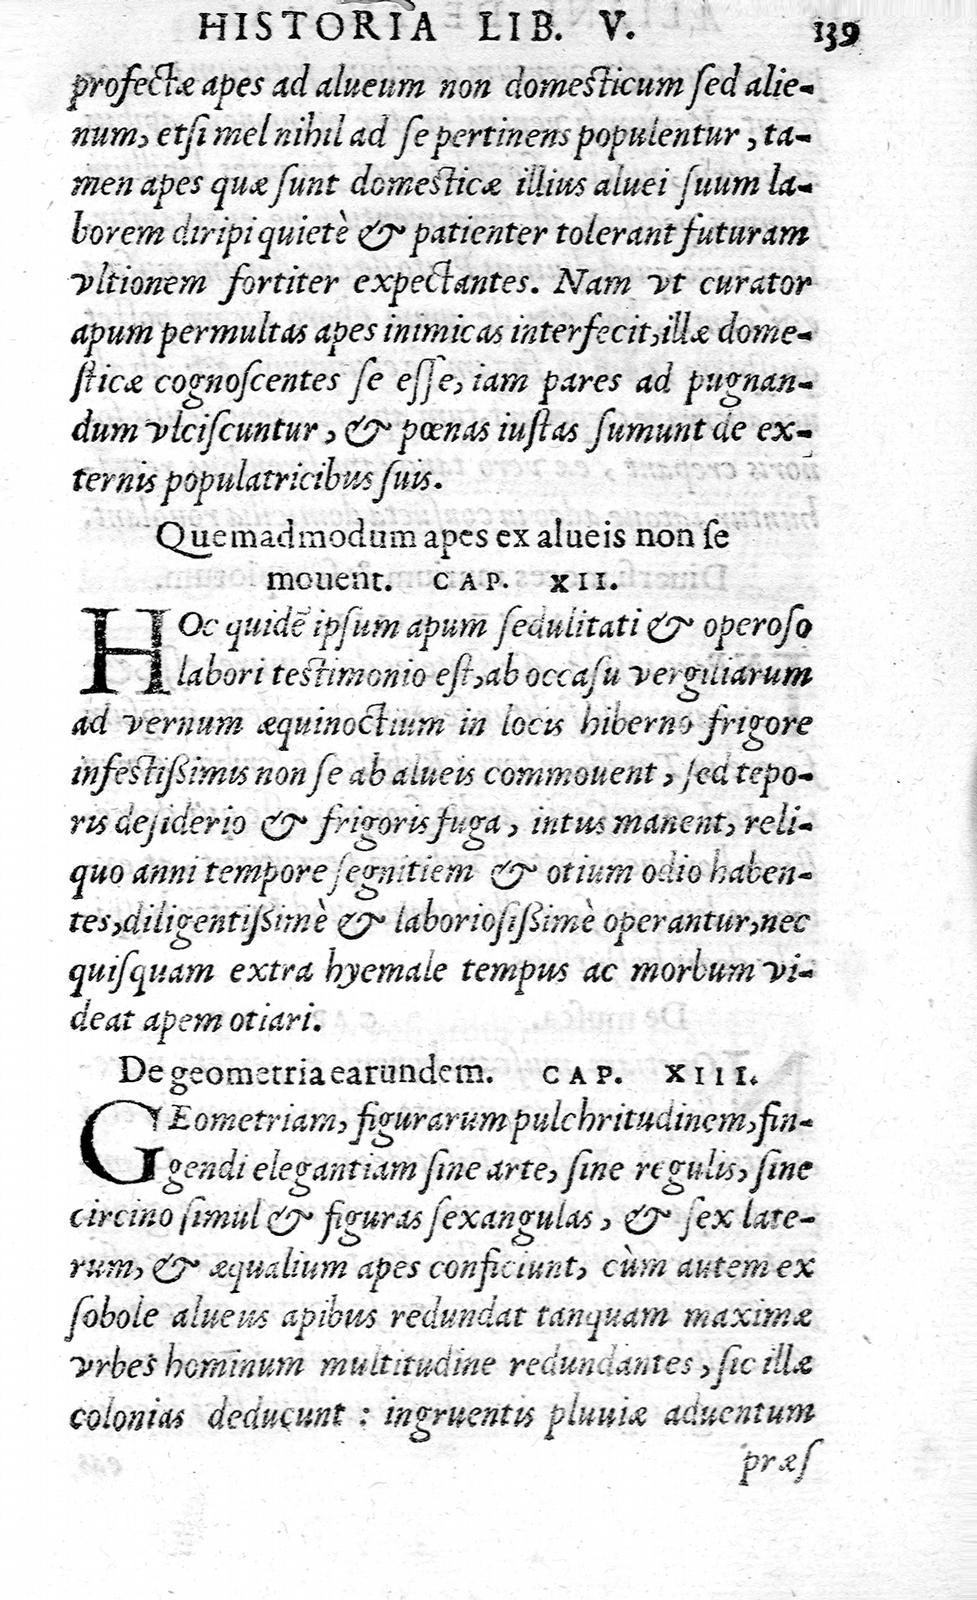 HISTORIA LIB. V. 139
profectæ apes ad alueum non domesticum ſed alie-
num, etſi mel nihil ad ſe pertinens populentur, ta-
men apes quæ ſunt domesticæ illius aluei ſuum la-
borem diripi quietè & patienter tolerant futuram
vltionem fortiter expectantes. Nam vt curator
apum permultas apes inimicas interfecit, illæ dome-
ſticæ cognoſcentes ſe eſſe, iam pares ad pugnan-
dum vlciſcuntur, & pœnas iuſtas ſumunt de ex-
ternis populatricibus ſuis.
Quemadmodum apes ex alueis non ſe
mouent. CAP. XII.
HOc quidē ipſum apum ſedulitati & operoſo
labori testimonio eſt, ab occaſu vergiliarum
ad vernum æquinoctium in locis hiberno frigore
infestiſſimis non ſe ab alueis commouent, ſed tepo-
ris deſiderio & frigoris fuga, intus manent, reli-
quo anni tempore ſegnitiem & otium odio haben-
tes, diligentiſſimè & laborioſiſſimè operantur, nec
quiſquam extra hyemale tempus ac morbum vi-
deat apem otiari.
De geometria earundem. CAP. XIII.
GEometriam, figurarum pulchritudinem, fin-
gendi elegantiam ſine arte, ſine regulis, ſine
circino ſimul & figuras ſexangulas, & ſex late-
rum, & æqualium apes conficiunt, cùm autem ex
ſobole alueus apibus redundat tanquam maximæ
vrbes hominum multitudine redundantes, ſic illæ
colonias deducunt : ingruentis pluuiæ aduentum
præſ